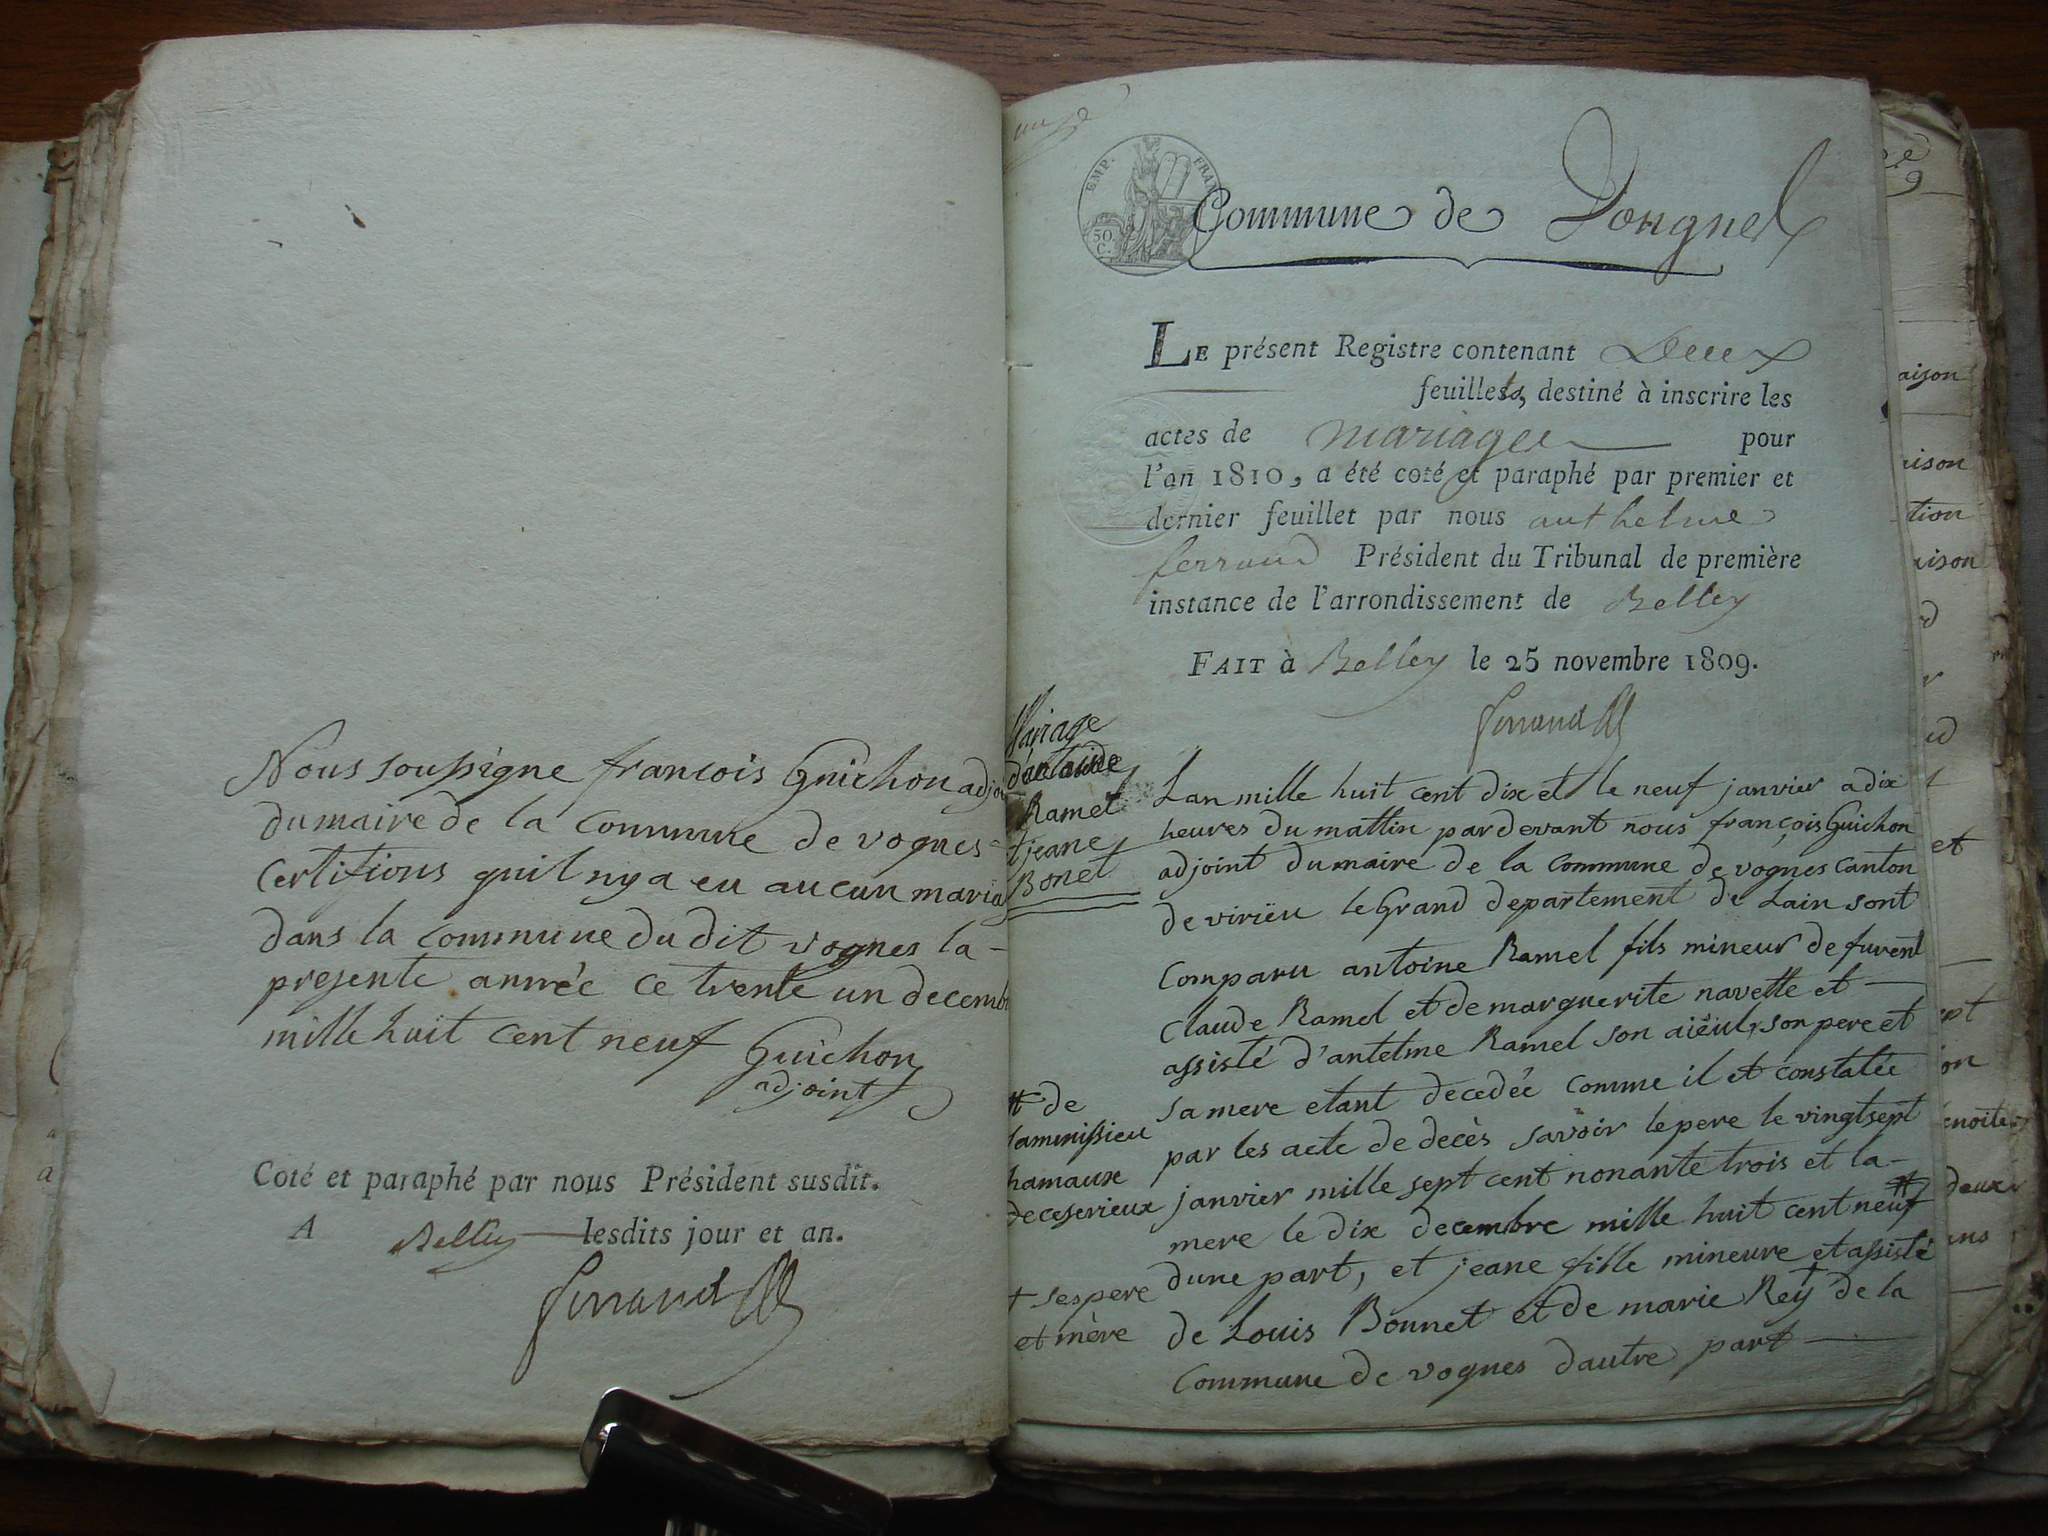 Nous soussigne francois Guichon adjoi
du maire de la Commune de vognes
Certifions quil ny a eu aucun maria
dans la Commune du dit vognes la-
presente année ce trente un decemb
mille huit cent neuf Guichon
adjoint
Coté et paraphé par nous Président susdit.
A Belley lesdits jour et an.
Ferrand
EMP. FRAN
50 C.
Commune de
LE présent Registre contenant Deux
feuillets, destiné à inscrire les
actes de mariages pour
l'an 1810, a été coté et paraphé par premier et
dernier feuillet par nous anthelme
ferrand Président du Tribunal de première
instance de l'arrondissement de Belley
FAIT à Belley le 25 novembre 1809.
Ferrand
Mariage
Ramel
et jeane
Bonet
Lan mille huit cent dix et le neuf janvier a dix
heures du mattin pardevant nous françois Guichon
adjoint du maire de la commune de vognes canton
de viriëu le Grand departement de Lain sont
Comparu antoine Ramel fils mineur de fuvent
Claude Ramel et de marguerite navette et
assisté d'antelme Ramel son aïëul, son pere et
sa mere etant decedée comme il et constatée
par les acte de decès savoir le pere le vingt sept
janvier mille sept cent nonante trois et la-
mere le dix decembre mille huit cent neuf #
dune part, et jeane fille mineure et assisté
de Louis Bonnet et de marie Reÿ † de la
Commune de vognes dautre part
# de
hamaux
de ceserieux
† ses pere
et mère
aison
aison
tion
aison
et
deux